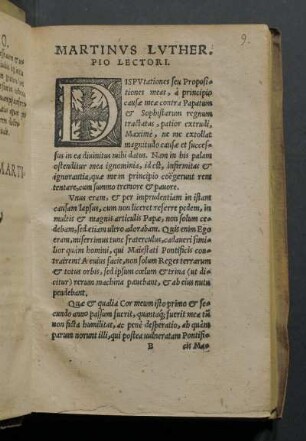 9.
MARTINVS LVTHER.
PIO LECTORI.
DISPVtationes seu Proposi
tiones meas, à principio
causæ meæ contra Papatum
& Sophistarum regnum
tractatas, patior excudi,
Maximè, ne me extollat
magnitudo causæ et succes-
sus in ea diuinitus mihi datus. Nam in his palam
ostenditur mea ignominia, idest, infirmitas &
ignorantia, quæ me in principio coëgerunt rem
tentare, cum summo tremore & pauore.
Vnus eram, & per imprudentiam in istam
causam lapsus, cum non liceret referre pedem, in
multis & magnis articulis Papæ, non solum ce-
debam, sed etiam ultro adorabam. Quis enim Ego
eram, miserrimus tunc fraterculus, cadaueri simi-
lior quàm homini, qui Maiestati Pontificis con-
trairem? à cuius facie, non solum Reges terrarum
& totus orbis, sed ipsum cœlum & tirina (ut di-
citur) rerum machina pauebant, & ab eius nutu
pendebant.
Quæ & qualia Cor meum isto primo & se-
cundo anno passum fuerit, quantaq́; fuerit mea tũ
non ficta humilitas, ac penè desperatio, ah quàm
parum norunt illi, qui postea uulneratam Pontifi-
B